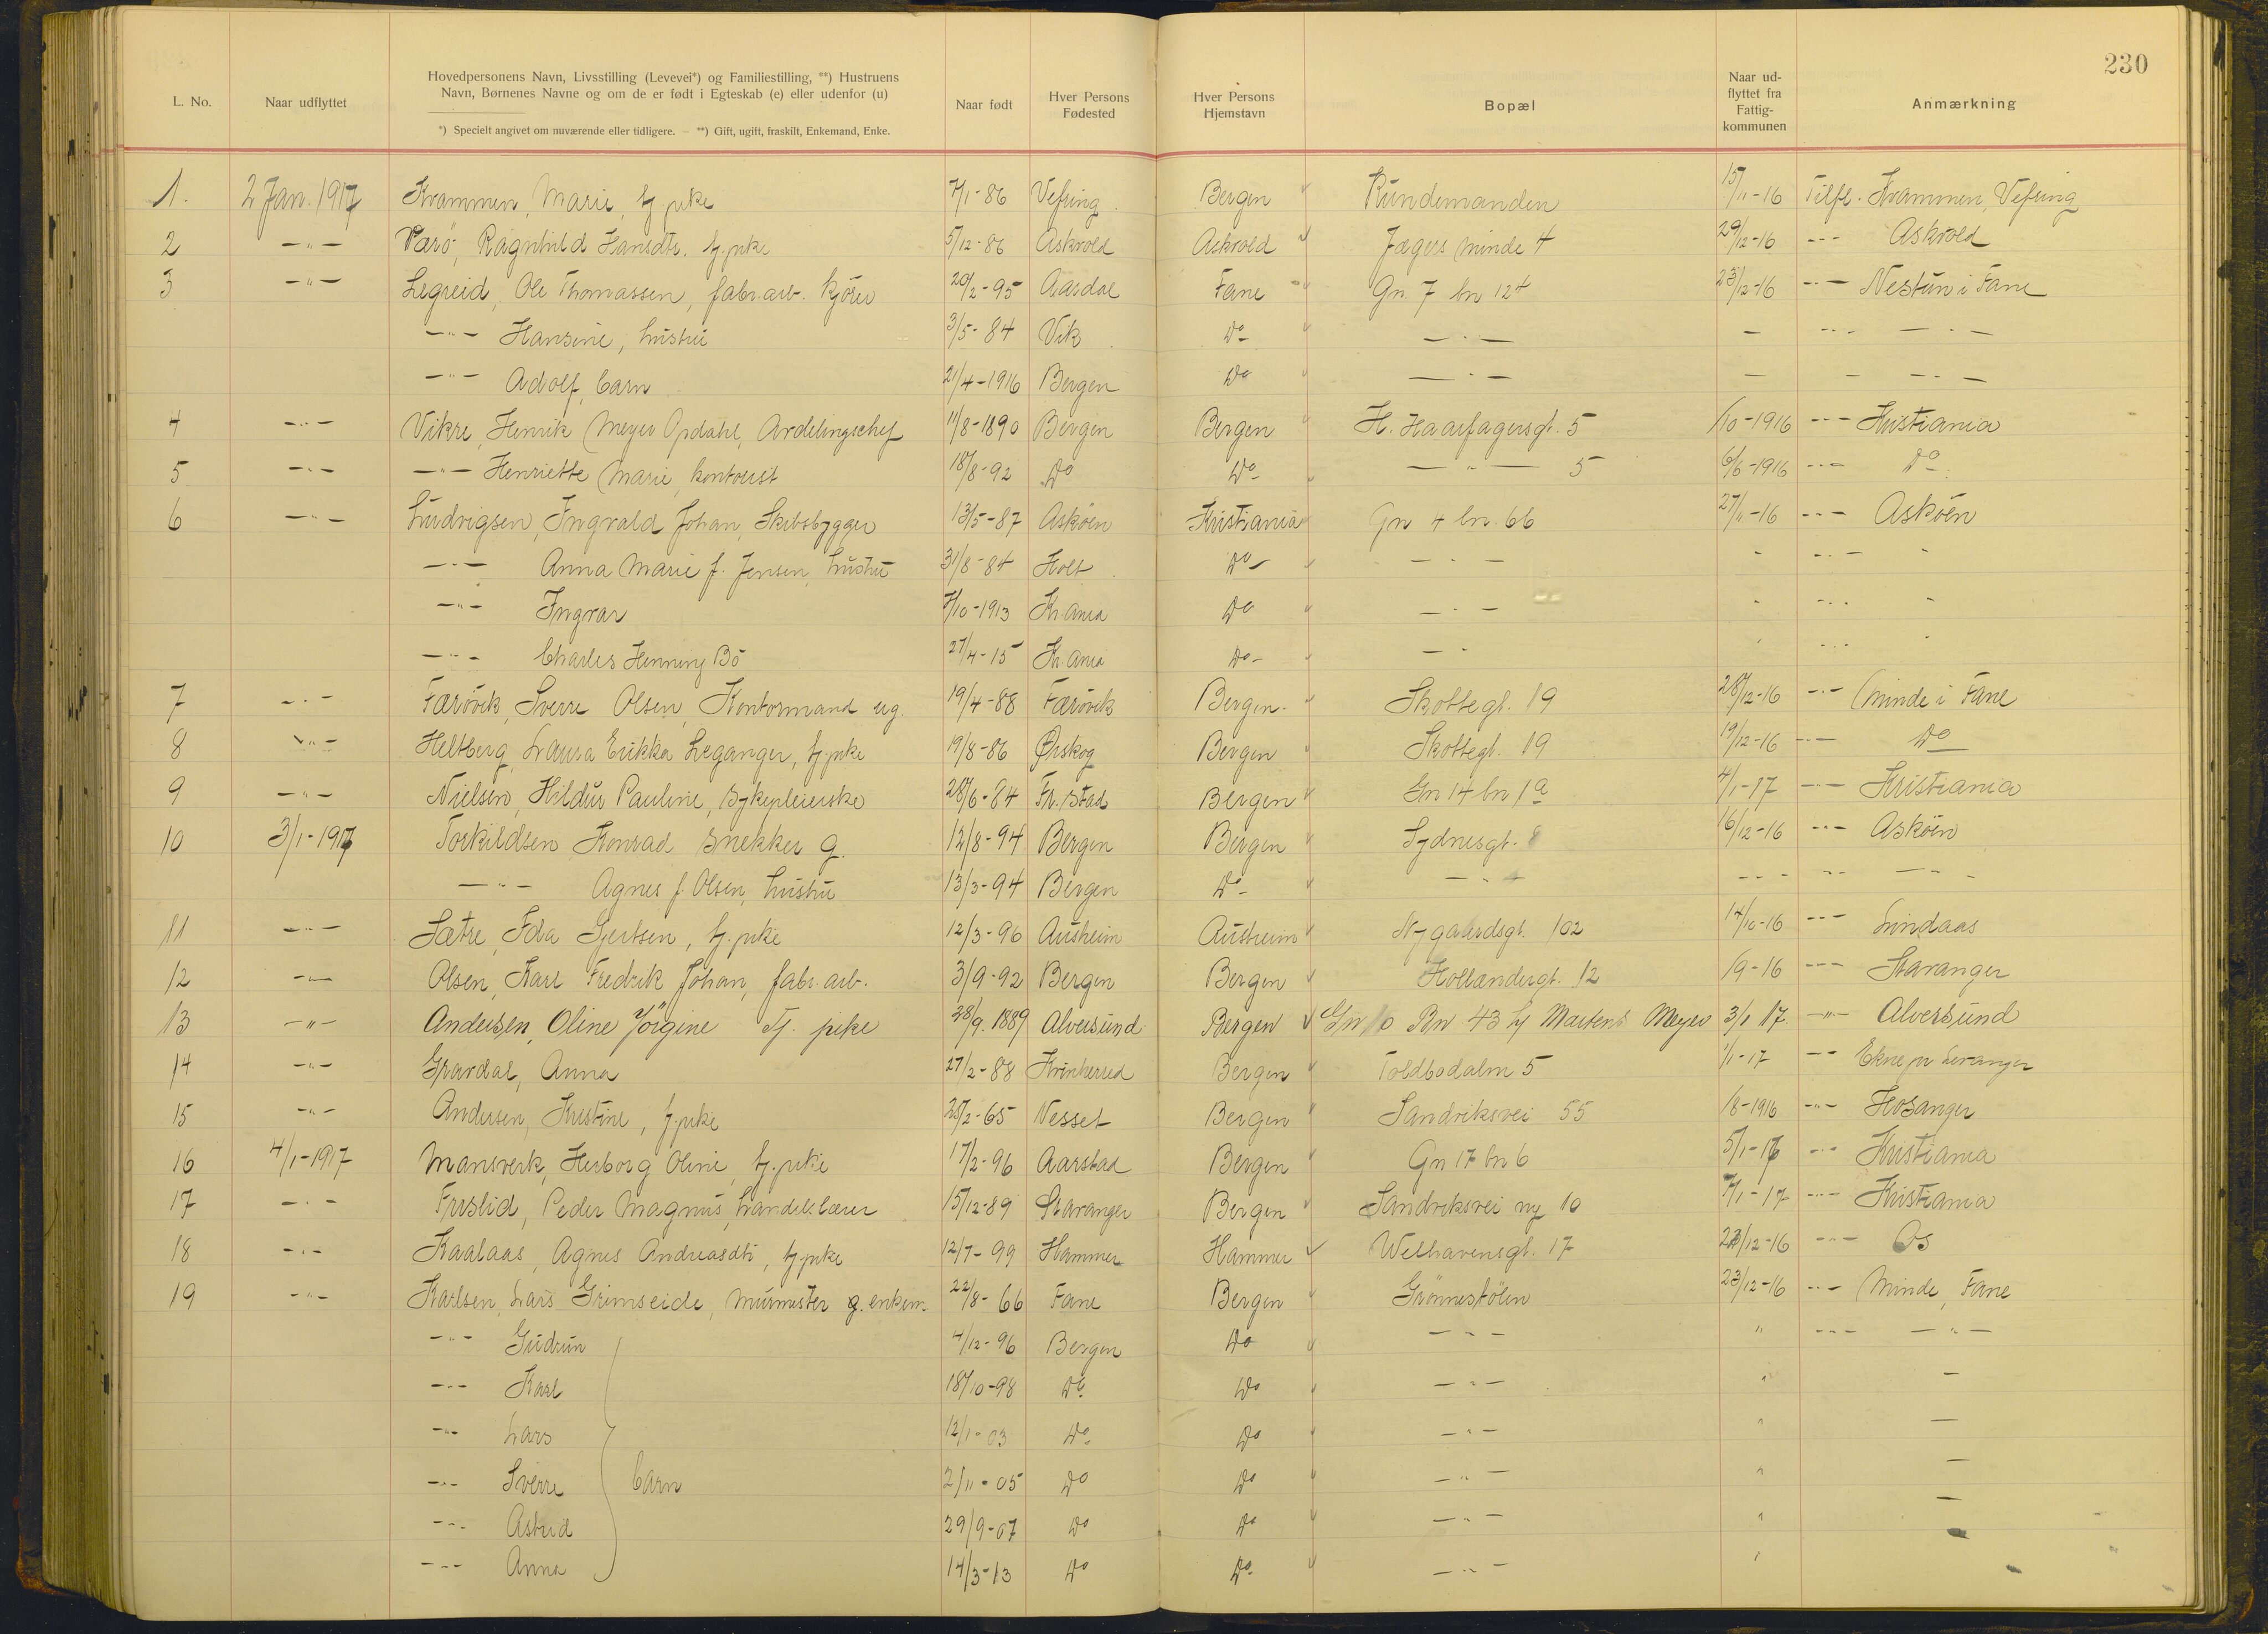 230
L. No. Naar udflyttet Hovedpersonens Navn, Livsstilling (Levevei*) og Familiestilling, **) Hustruens Navn, Børnenes Navne og om de er født i Egteskab (e) eller udenfor (u) Naar født Hver Persons Fødested Hver Persons Hjemstavn Bopæl Naar udflyttet fra Fattigkommunen Anmærkning
*) Specielt angivet om nuværende eller tidligere. — **) Gift, ugift, fraskilt, Enkemand, Enke.
1. 2 Jan. 1917 Kvammen, Marie, tj pike 7/1-86 Vefring Bergen Rundemanden 15/11-16 Tilfl. Kvammen, Vefring
2 —"— Værö, Ragnhild Hansdtr. tj. pike 5/12-86 Askvold Askvold Jægers minde 4 29/12-16 —"— Askvold
3 —"— Legreid, Ole Thomassen, fabr. arb. kjörer 20/2-95 Aardal Fane Gn. 7 bn 124 23/12-16 —"— Nestun i Fane
—"— Hansine, hustru 3/5-84 Vik Do —"— — —"— —"—
—"— Adolf, barn 21/4-1916 Bergen Do —"— — — —"—
4 —"— Vikre, Henrik Meyer Opdahl, Avdelingschef 11/8-1890 Bergen Bergen H. Haarfagersgt. 5 /10-1916 —"— Kristiania
5 —"— —"— Henriette Marie, kontorist 18/8-92 Do Do —"— 5 6/6-1916 —"— Do
6 —"— Ludvigsen, Ingvald Johan, Skibsbygger 13/5-87 Askøen Kristiania Gn 4 bn. 66 27/11-16 —"— Askøen
—"— Anna Marie f. Jensen, hustru 31/8-84 Holt Do —"— " —"— "
—"— Ingvar 7/10-1913 Kr.ania Do —"— " —"— "
—"— Charles Henning Bö 27/4-15 Kr.ania Do —"— " —"— "
7 —"— Færövik, Sverre Olsen, Kontormand ug. 19/4-88 Færövik Bergen Skottegt. 19 28/12-16 —"— Minde i Fane
8 —"— Heltberg, Laura Erikka Leganger, tj pike 19/8-86 Ørskog Bergen Skottegt. 19 19/12-16 —"— Do
9 —"— Nielsen, Hildur Pauline, sykepleierske 28/6-84 Fr.stad Bergen Gn 14 bn 1a 4/1-17 —"— Kristiania
10 3/1-1917 Torkildsen Konrad snekker g. 12/8-94 Bergen Bergen Sydnesgt. 8 16/12-16 —"— Askøen
—"— Agnes f. Olsen, hustru 13/3-94 Bergen Do —"— —"— —"— —"—
11 —"— Sætre, Ida Gjertsen, tj. pike 12/3-96 Austheim Austheim Nygaardsgt. 102 14/10-16 —"— Lindaas
12 —"— Olsen, Karl Fredrik Johan, fabr. arb. 3/9-92 Bergen Bergen Hollendergt. 12 /9-16 —"— Stavanger
13 —"— Andersen, Oline Jörgine Tj. pike 28/9. 1889 Alversund Bergen Gn 10 Bn 43 hj Martens Meyer 3/1 17. —"— Alversund
14 —"— Gravdal, Anna 27/2-88 Kvinherred Bergen Toldbodalm 5 1/1-17 —"— Ekne pr Levanger
15 —"— Andersen, Kristine, tj. pike 25/2-65 Nesset Bergen Sandviksvei 55 /8-1916 —"— Hosanger
16 4/1-1917 Mansverk, Herborg Oline, tj. pike 17/2-96 Aarstad Bergen Gn 17 bn 6 5/1-17 —"— Kristiania
17 —"— Frislid, Peder Magnus, handelslærer 15/12-89 Stavanger Bergen Sandviksvei ny 10 7/1-17 —"— Kristiania
18 —"— Kaalaas, Agnes Andreasdtr, tj pike 12/7-99 Hammer Hammer Welhavensgt. 17 /12-16 —"— Os
19 —"— Karlsen, Lars Grimseide, murmester g. enkem. 22/8-66 Fane Bergen Grönnestölen 23/12-16 —"— Minde, Fane
—"— Gudrun 4/12-96 Bergen Do —"— " —"— —"—
—"— Karl 18/10-98 Do Do —"— " —
—"— Lars 12/1-03 Do Do —"— " —
—"— Sverre barn 2/11-05 Do Do —"— " —
—"— Astrid 29/9-07 Do Do —"— " —
—"— Anna 14/3-13 Do Do —"— "